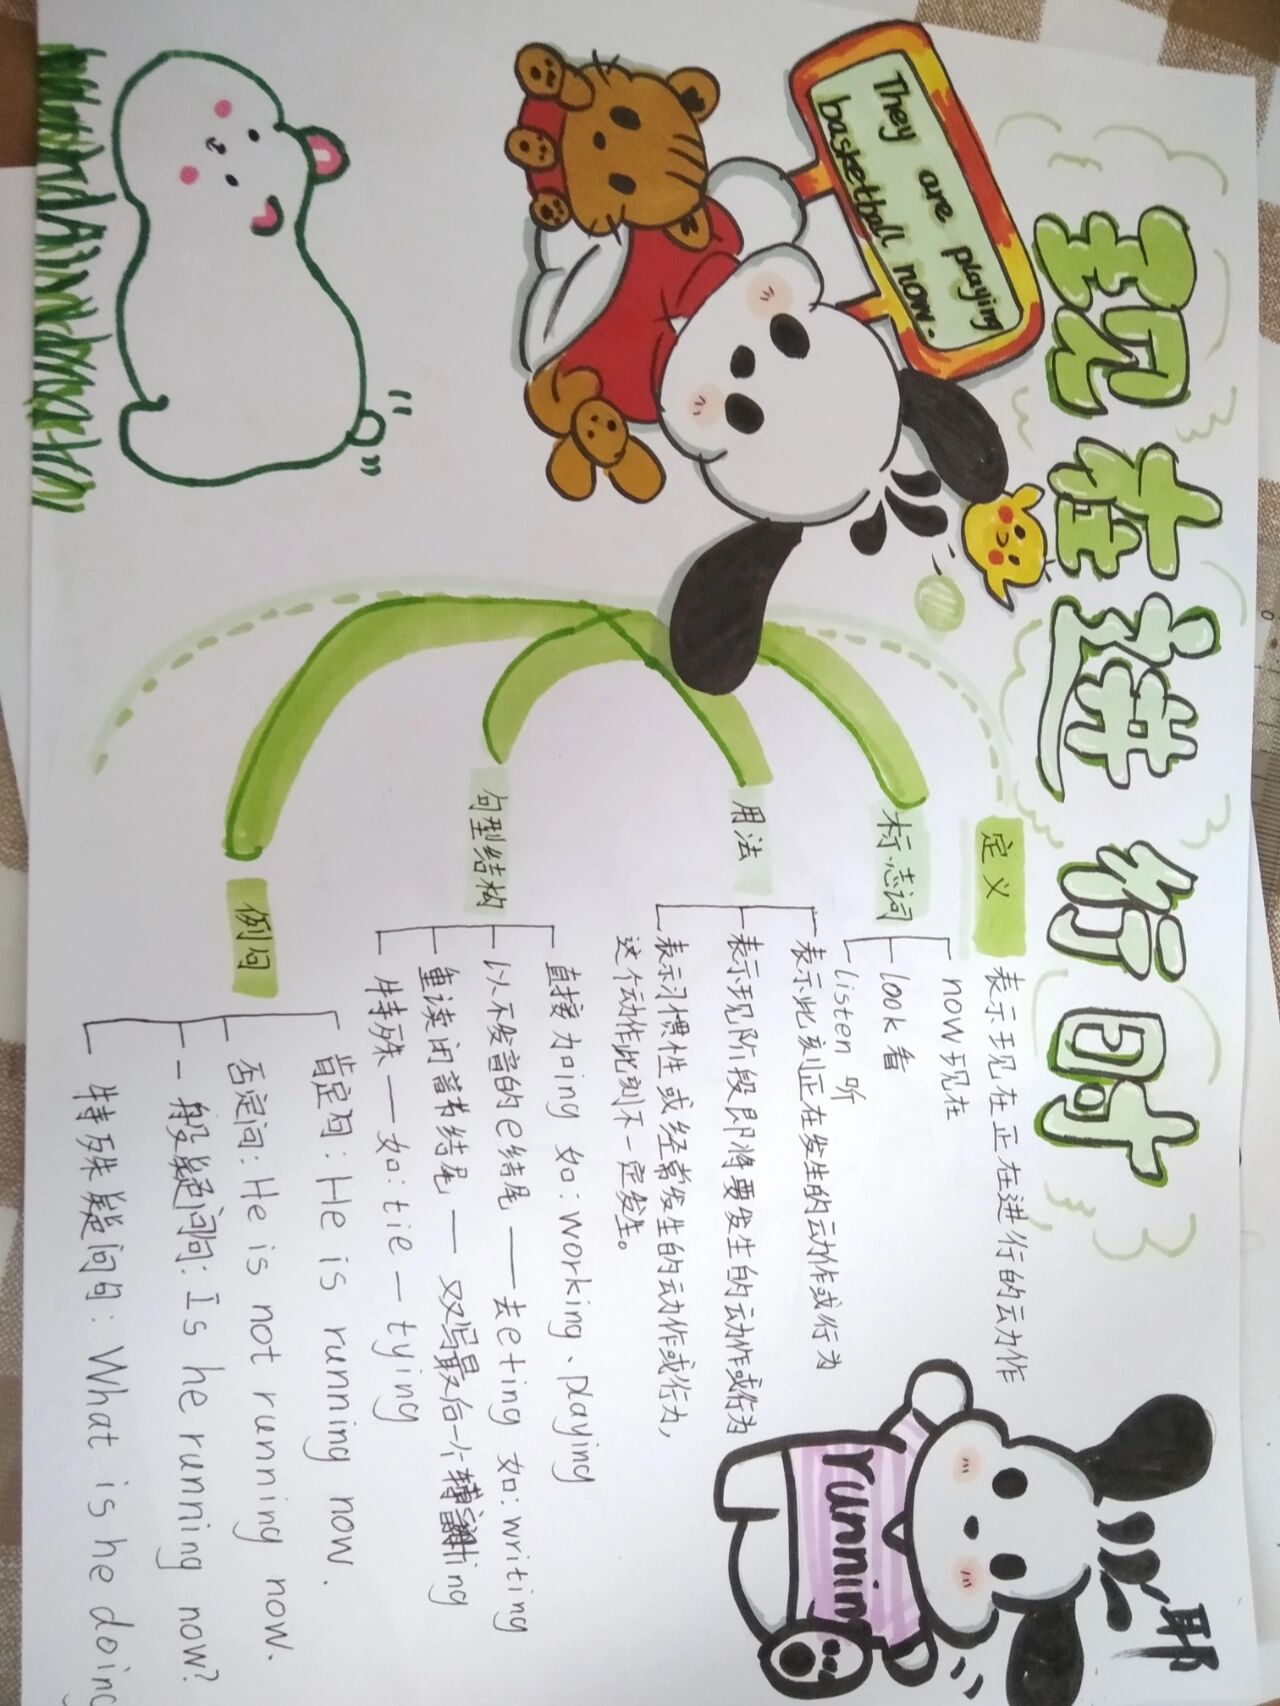 现在进行时
They are playing
basketball now.
定义
表示现在正在进行的动作
标志词
now现在
look看
listen 听
用法
表示此刻正在发生的动作或行为
表示现阶段即将要发生的动作或行为
表示习惯性或经常发生的动作或行为,
这个动作此刻不一定发生。
句型结构
直接加ing 如:working、playing
以不发音的e结尾——去e+ing 如:writing
重读闭音节结尾——双写最后一个辅+ing
特殊——如:tie—tying
例句
肯定句:He is running now.
否定句:He is not running now.
一般疑问句:Is he running now?
特殊疑问句:What is he doing
耶
runnin